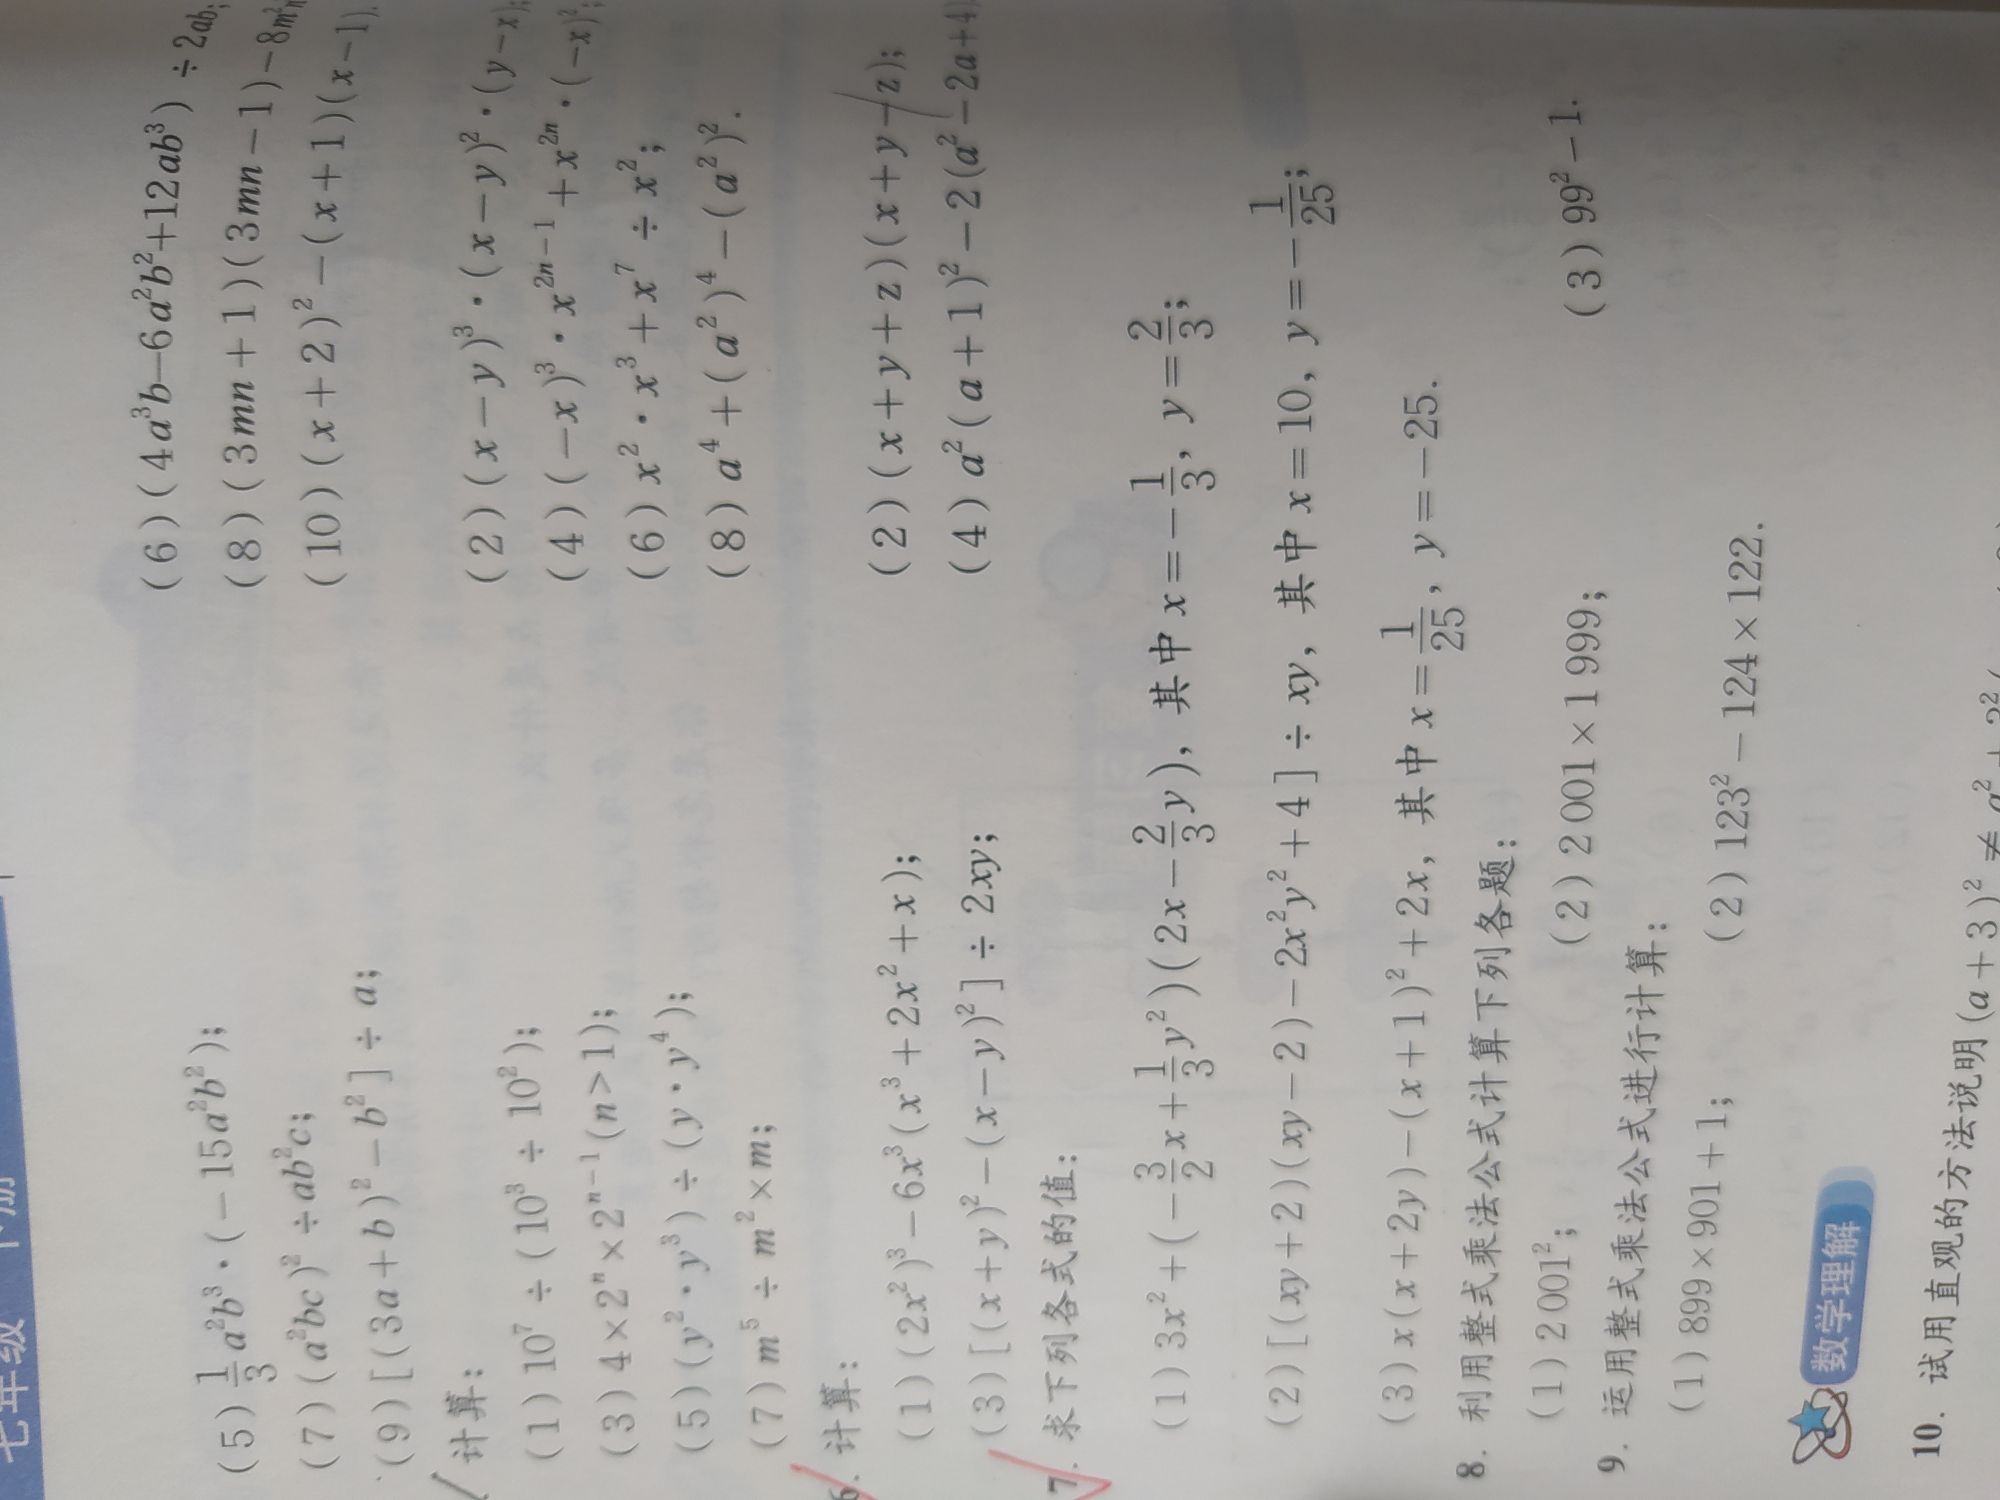 七年级 下册
(5) $\frac{1}{3}a^2b^3·(-15a^2b^2)$; (6) $(4a^3b-6a^2b^2+12ab^3)÷2ab$;
(7) $(a^2bc)^2÷ab^2c$; (8) $(3mn+1)(3mn-1)-8m^2n$
(9) $[(3a+b)^2-b^2]÷a$; (10) $(x+2)^2-(x+1)(x-1)$.
计算：
(1) $10^7÷(10^3÷10^2)$; (2) $(x-y)^3·(x-y)^2·(y-x)$;
(3) $4×2^n×2^{n-1}(n>1)$; (4) $(-x)^3·x^{2n-1}+x^{2n}·(-x)^2$;
(5) $(y^2·y^3)÷(y·y^4)$; (6) $x^2·x^3+x^7÷x^2$;
(7) $m^5÷m^2×m$; (8) $a^4+(a^2)^4-(a^2)^2$.
6. 计算：
(1) $(2x^2)^3-6x^3(x^3+2x^2+x)$; (2) $(x+y+z)(x+y-z)$;
(3) $[(x+y)^2-(x-y)^2]÷2xy$; (4) $a^2(a+1)^2-2(a^2-2a+4)$
7. 求下列各式的值：
(1) $3x^2+(-\frac{3}{2}x+\frac{1}{3}y^2)(2x-\frac{2}{3}y)$，其中 $x=-\frac{1}{3}$，$y=\frac{2}{3}$;
(2) $[(xy+2)(xy-2)-2x^2y^2+4]÷xy$，其中 $x=10$，$y=-\frac{1}{25}$;
(3) $x(x+2y)-(x+1)^2+2x$，其中 $x=\frac{1}{25}$，$y=-25$.
8. 利用整式乘法公式计算下列各题：
(1) $2001^2$; (2) $2001×1999$; (3) $99^2-1$.
9. 运用整式乘法公式进行计算：
(1) $899×901+1$; (2) $123^2-124×122$.
数学理解
10. 试用直观的方法说明 $(a+3)^2≠a^2+3^2$(